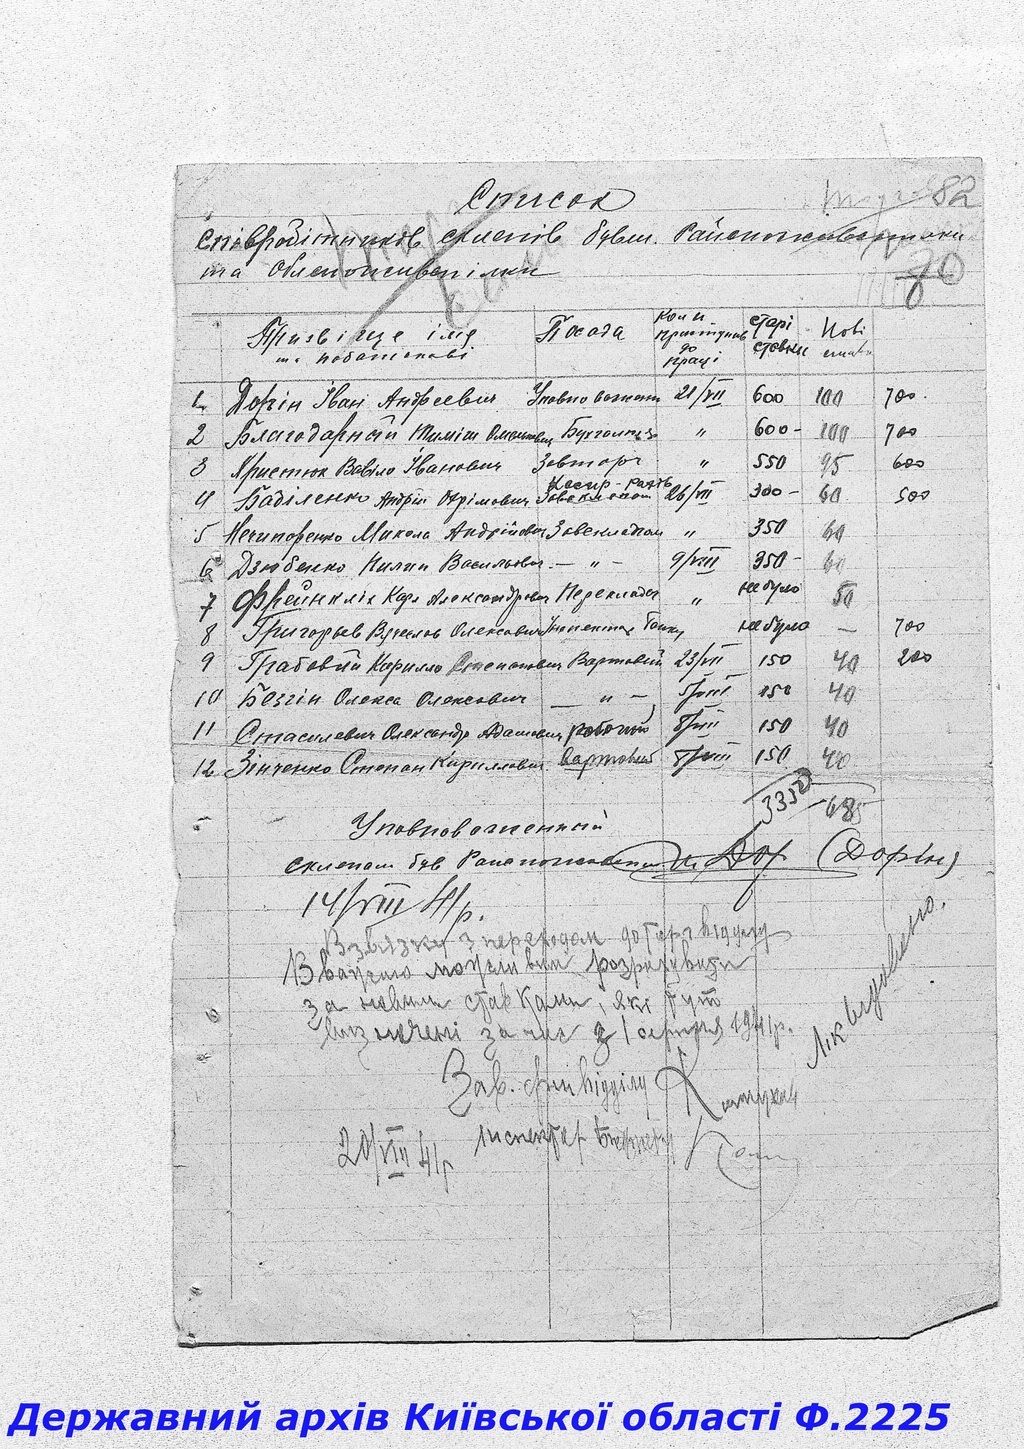 Список
82
співробітників склепів бувш. Райспоживспілки
та Облспоживспілки
80
Призвіще імя та побатькові Посада Коли приступив до праці старі ставки Нові ставки
1 Дорін Іван Андреевич Уповноважен 21/VII 600 100 700
2 Благодарний Бухгалтер " 600 100 700
3 Христюк Вавіло Іванович Завторг " 550 95 600
4 Баділенко Андрій Юхимович Завсклепом 26/VII 300 60 500
5 Нечипоренко Микола Андрійович Завскладом " 350 60
6 Дзюбенко Килип Васильович — " — 9/VIII 350 60
7 Карл Александрович Перекладач " не було 50
8 Григорьев Олексович Інспектор не було — 700
9 Грабовий Кирилло Степанович Вартовий 23/VII 150 40 200
10 Безгін Олекса Олексович — " — 5/VIII 150 40
11 Стасилевич Олександр Адамович робочий 8/VIII 150 40
12 Зінченко Степан Кирилович вартовий 8/VIII 150 40
3350 685
Уповноважений
склепом був Райспоживспілки Дор (Дорін)
14/VIII 41р.
Взвязку з переходом до відділу
Вважаю можливим розрахувати
за новими ставками, які тут
визначені за час з 1 серпня 1941р.
Ліквідовано.
Зав. фінвідділу
інспектор
20/VIII 41р
Державний архів Київської області Ф.2225